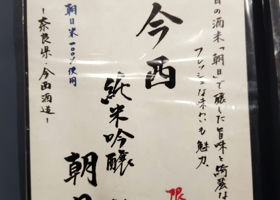 の酒米「朝日」で醸した旨味と綺麗な
フレッシュな味わいも魅力。
今西
純米吟醸
朝
限
朝日米100%使用
ー奈良県・今西酒造ー